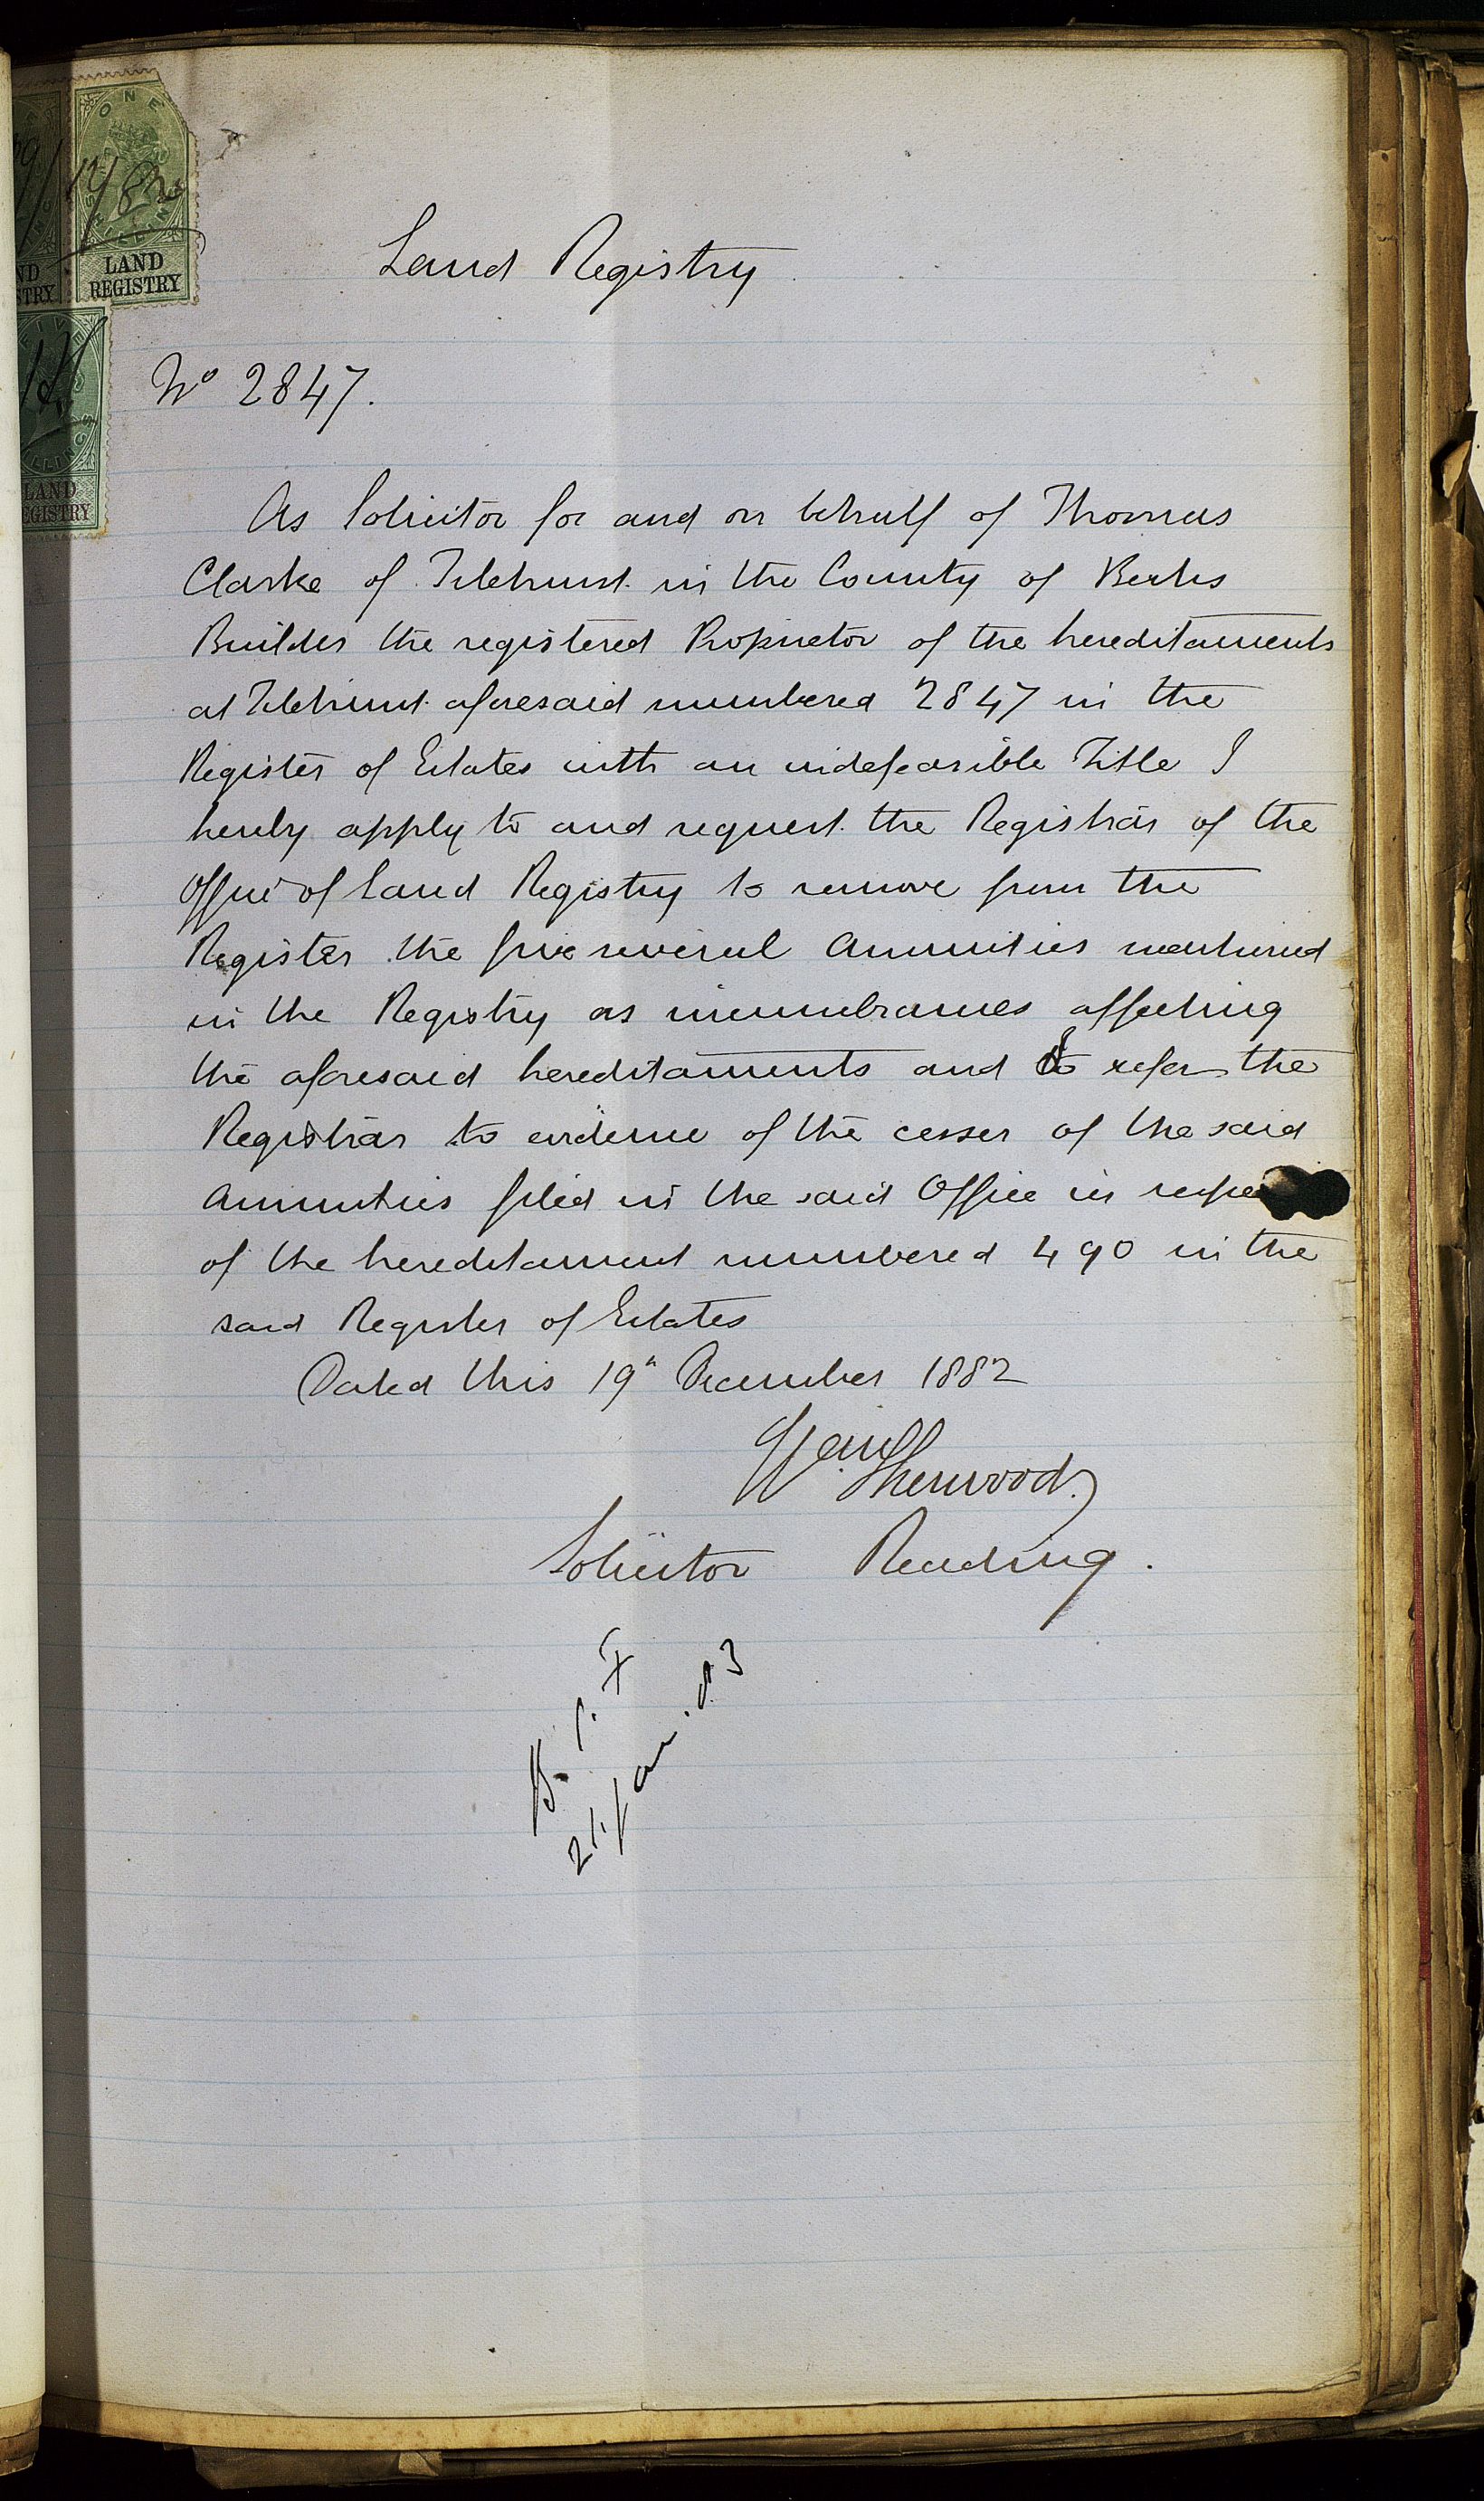 ONE
SHILLING
LAND
REGISTRY
LAND
REGISTRY
Land Registry
No 2847.
As Solicitor for and on behalf of Thomas
Clarke of Tilehurst in the County of Berks
Builder the registered Proprietor of the hereditaments
at Tilehurst aforesaid numbered 2847 in the
Register of Estates with an indefeasible Title I
hereby apply to and request the Registrar of the
Office of Land Registry to remove from the
Register the five several Annuities mentioned
in the Registry as incumbrances affecting
the aforesaid hereditaments and I refer the
Registrar to evidence of the cesser of the said
Annuities filed in the said Office in
of the hereditament numbered 490 in the
said Register of Estates
Dated this 19th December 1882
Sherwood
Solicitor Reading.
21. Jan. 83